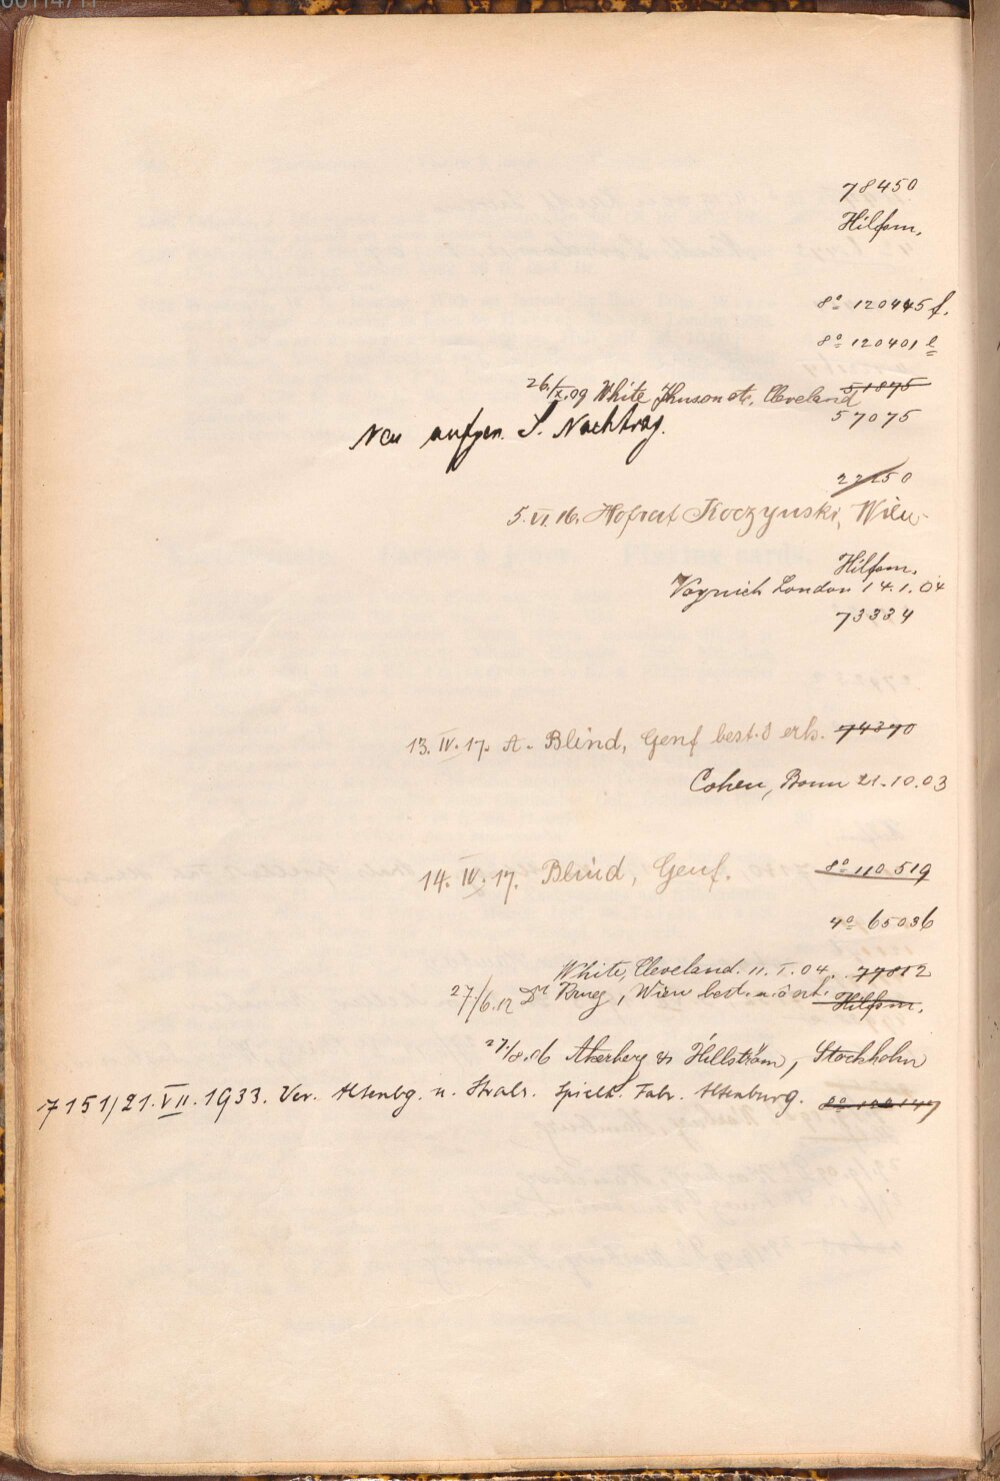 78450
Hilfsm.
8° 120445 f.
8° 120401 e
51875
26/X.09 White Cleveland
57075
Neu aufgen. S. Nachtrag.
22250
5. VI. 16. Hofrat Koczynski, Wien
Hilfsm.
Voynich London 14.1.04
73334
13. IV. 17. A. Blind, Genf best. erh. 74370
Cohen, Bonn 21.10.03
14. IV. 17. Blind, Genf. 8° 110 519
4° 65036
White, Cleveland. 11. I. 04. 77812
27/6.12 Dr , Wien best. Hilfsm.
27./8.06 Akerberg & Hellström, Stockholm
7151/21. VII. 1933. Ver. Altenbg. u. Strals. Spielk. Fabr. Altenburg.